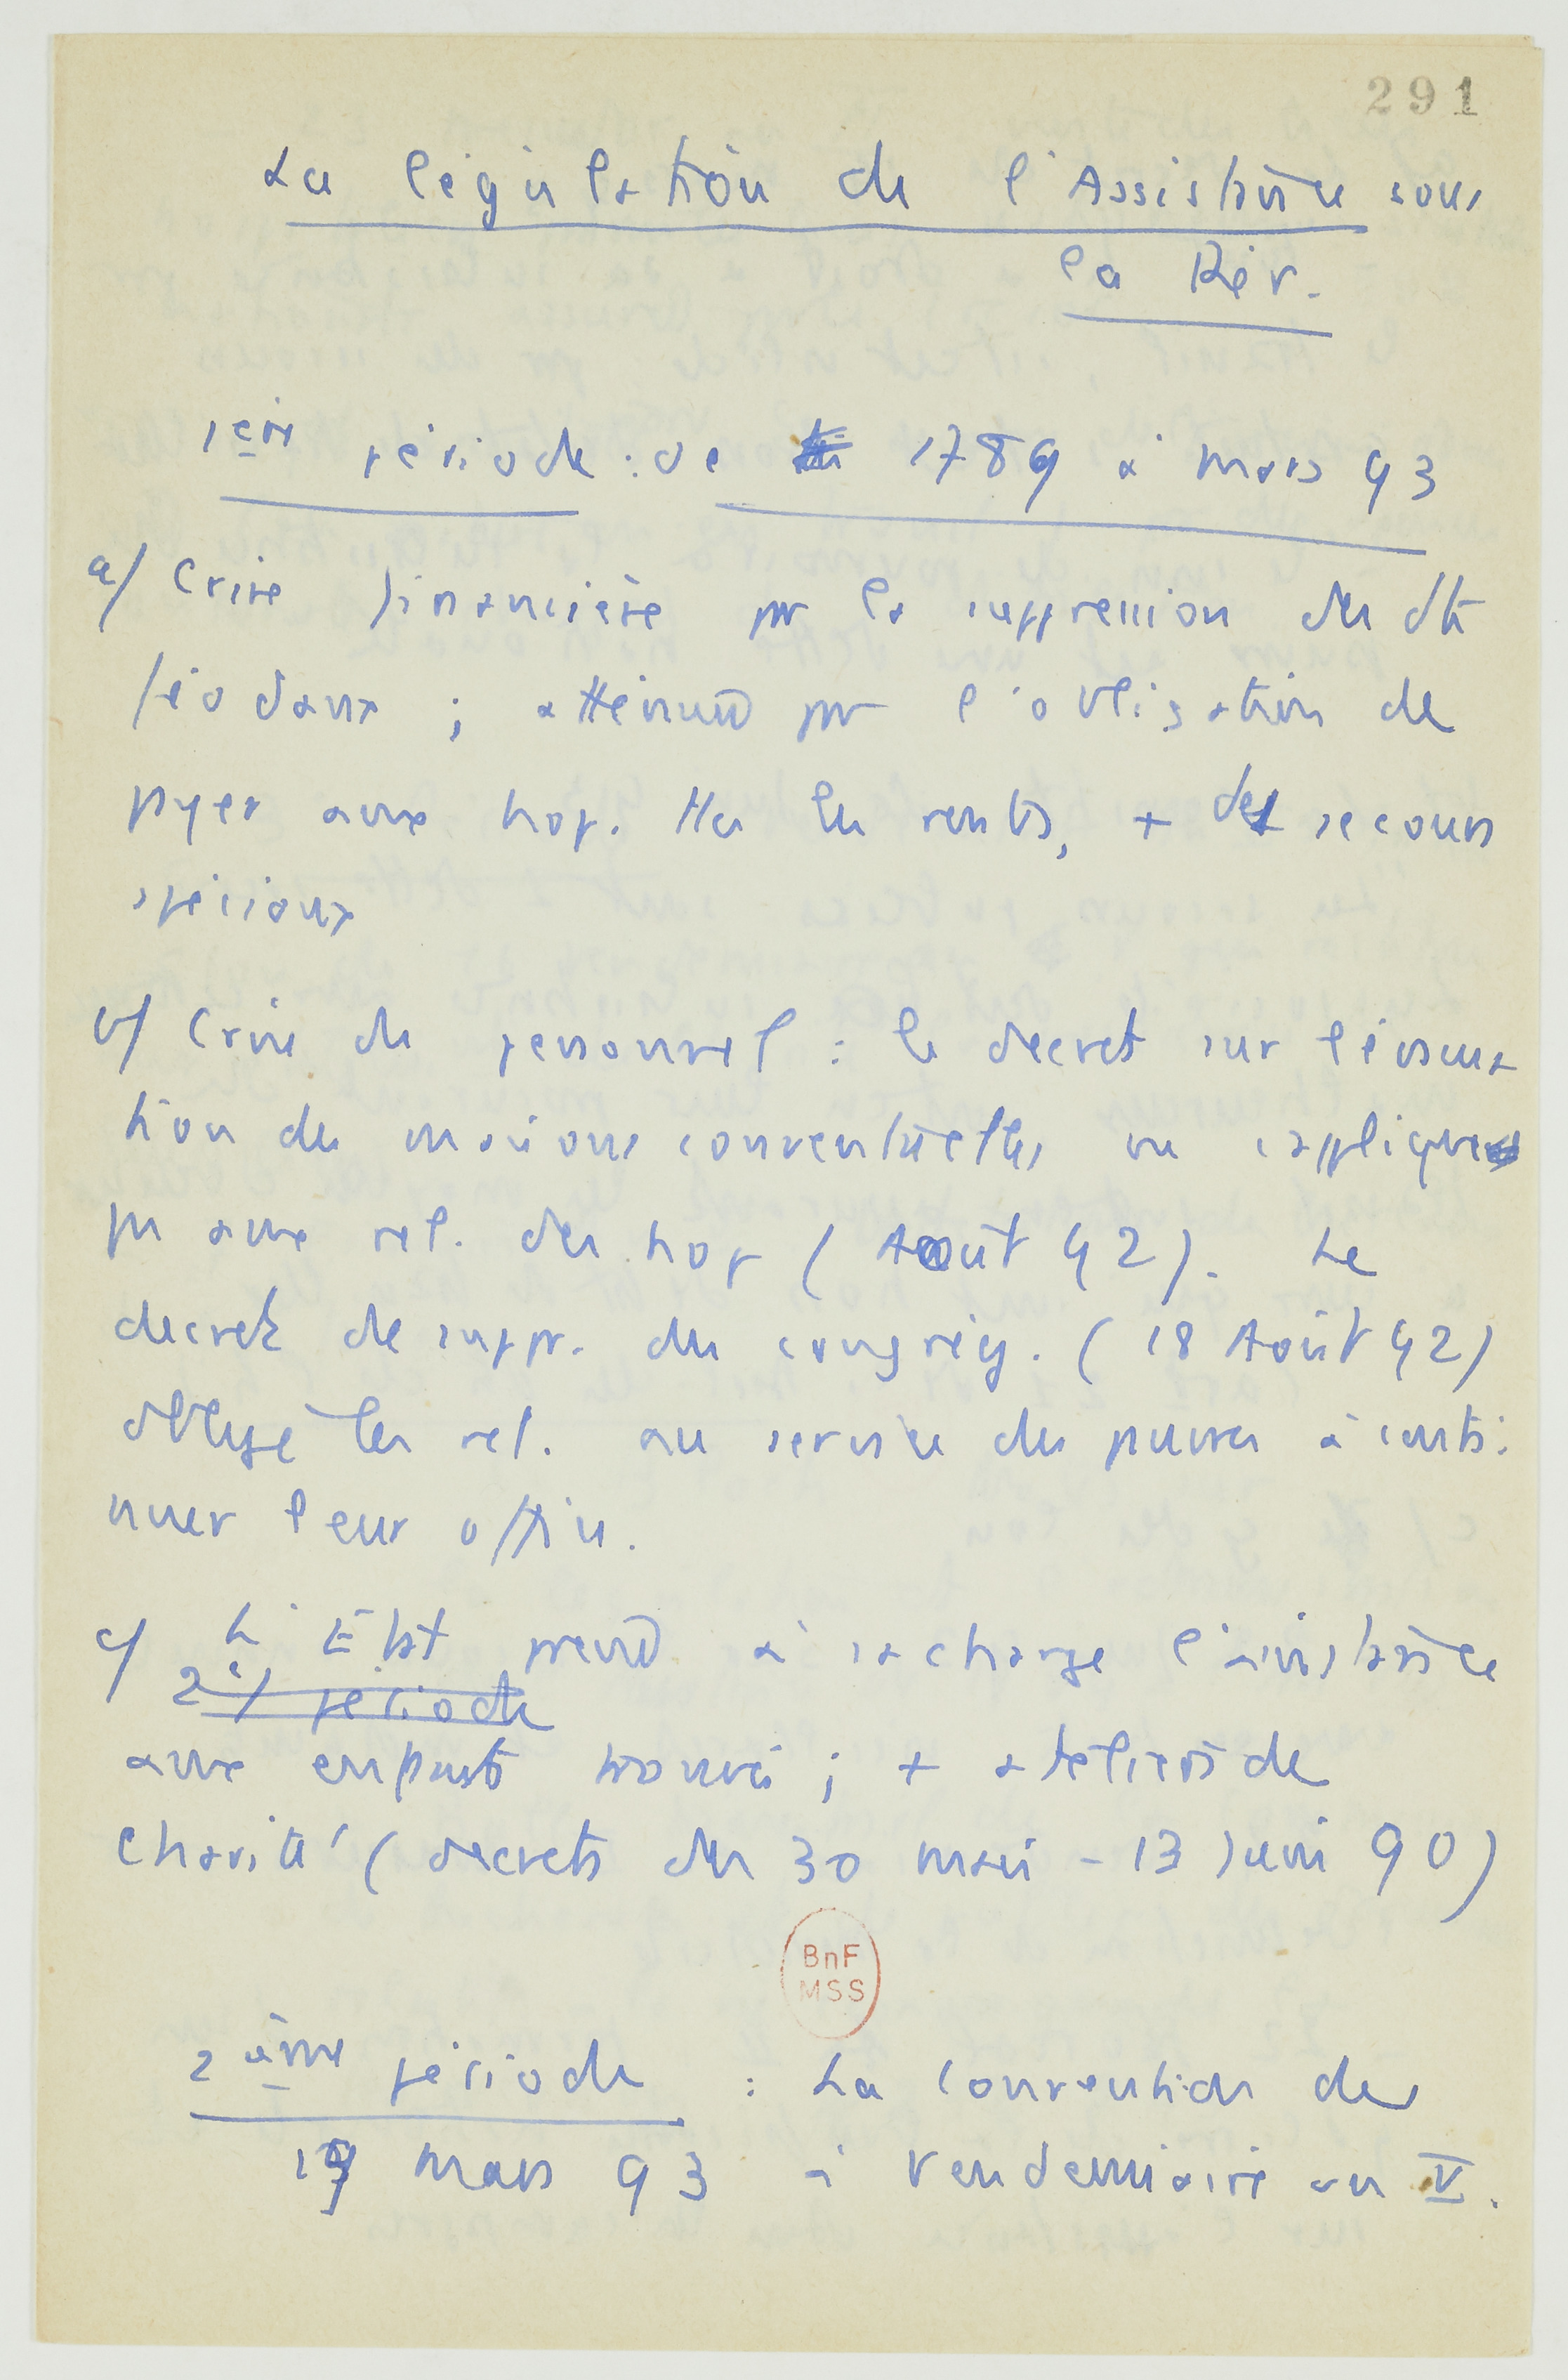 291
La législation de l'Assistance sous
la Rév.
1ère période : de 1789 à mars 93
a/ Crise financière par la suppression des dts
féodaux ; atténué par l'obligation de
payer aux hop. ttes les rentes, + des secours
spéciaux
b/ Crise de personnel : le décret sur l'évacua
tion des maisons conventuelles ne s'applique
pas aux rel. des hop (Août 92). Le
décret de suppr. des congrég. (18 Août 92)
oblige les rel. au service des pauvres à conti
nuer leur office.
c/ L'État prend à sa charge l'assistance
2e/ période
aux enfants trouvés ; + ateliers de
charité (décrets des 30 mai - 13 Juin 90)
BnF
MSS
2ème période : La Convention de
19 mars 93 à Vendémiaire an V.